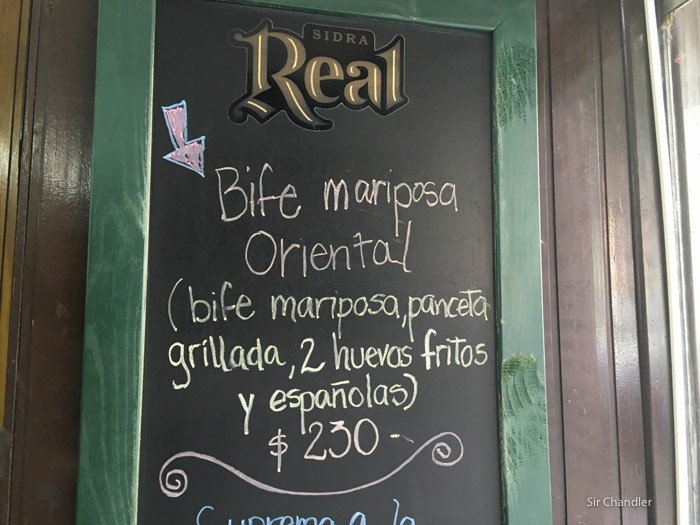 SIDRA
Real
Bife mariposa
Oriental
(bife mariposa, panceta
grillada, 2 huevos fritos
y españolas)
$ 230-
Suprema a la
Sir Chandler